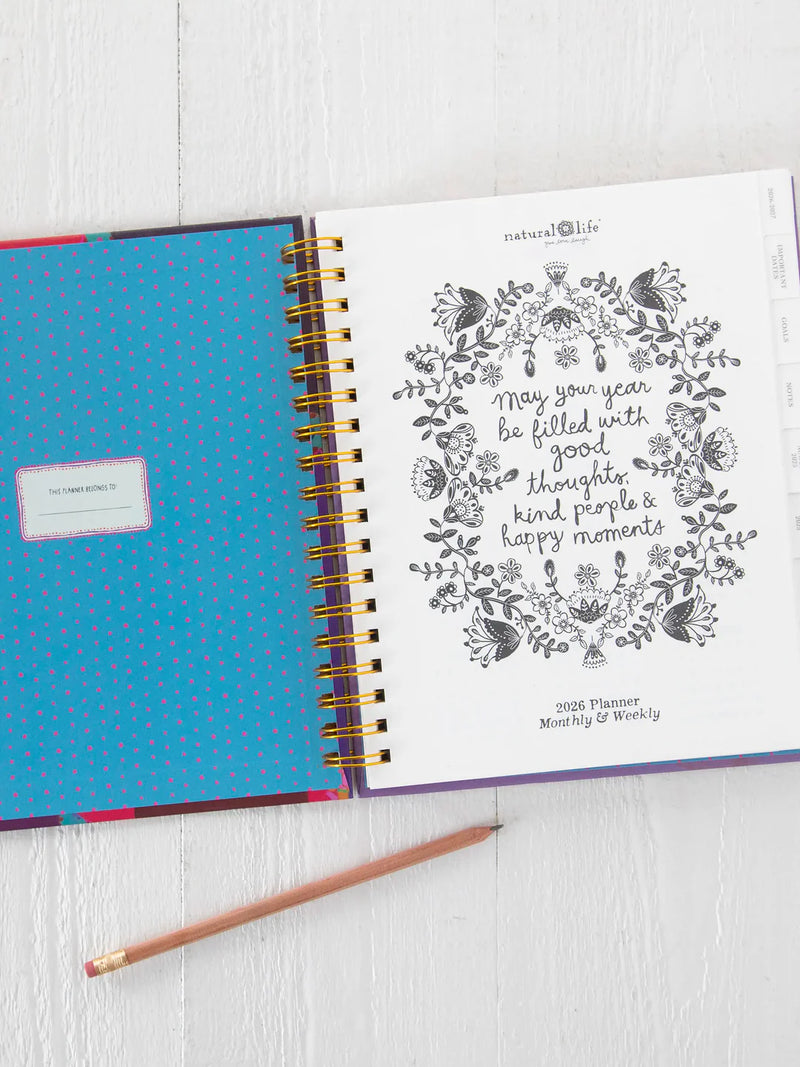 THIS PLANNER BELONGS TO:
natural life
live love laugh
May your year
be filled with
good
thoughts,
kind people &
happy moments
2026 Planner
Monthly & Weekly
2026-2027
IMPORTANT
DATES
GOALS
NOTES
2025